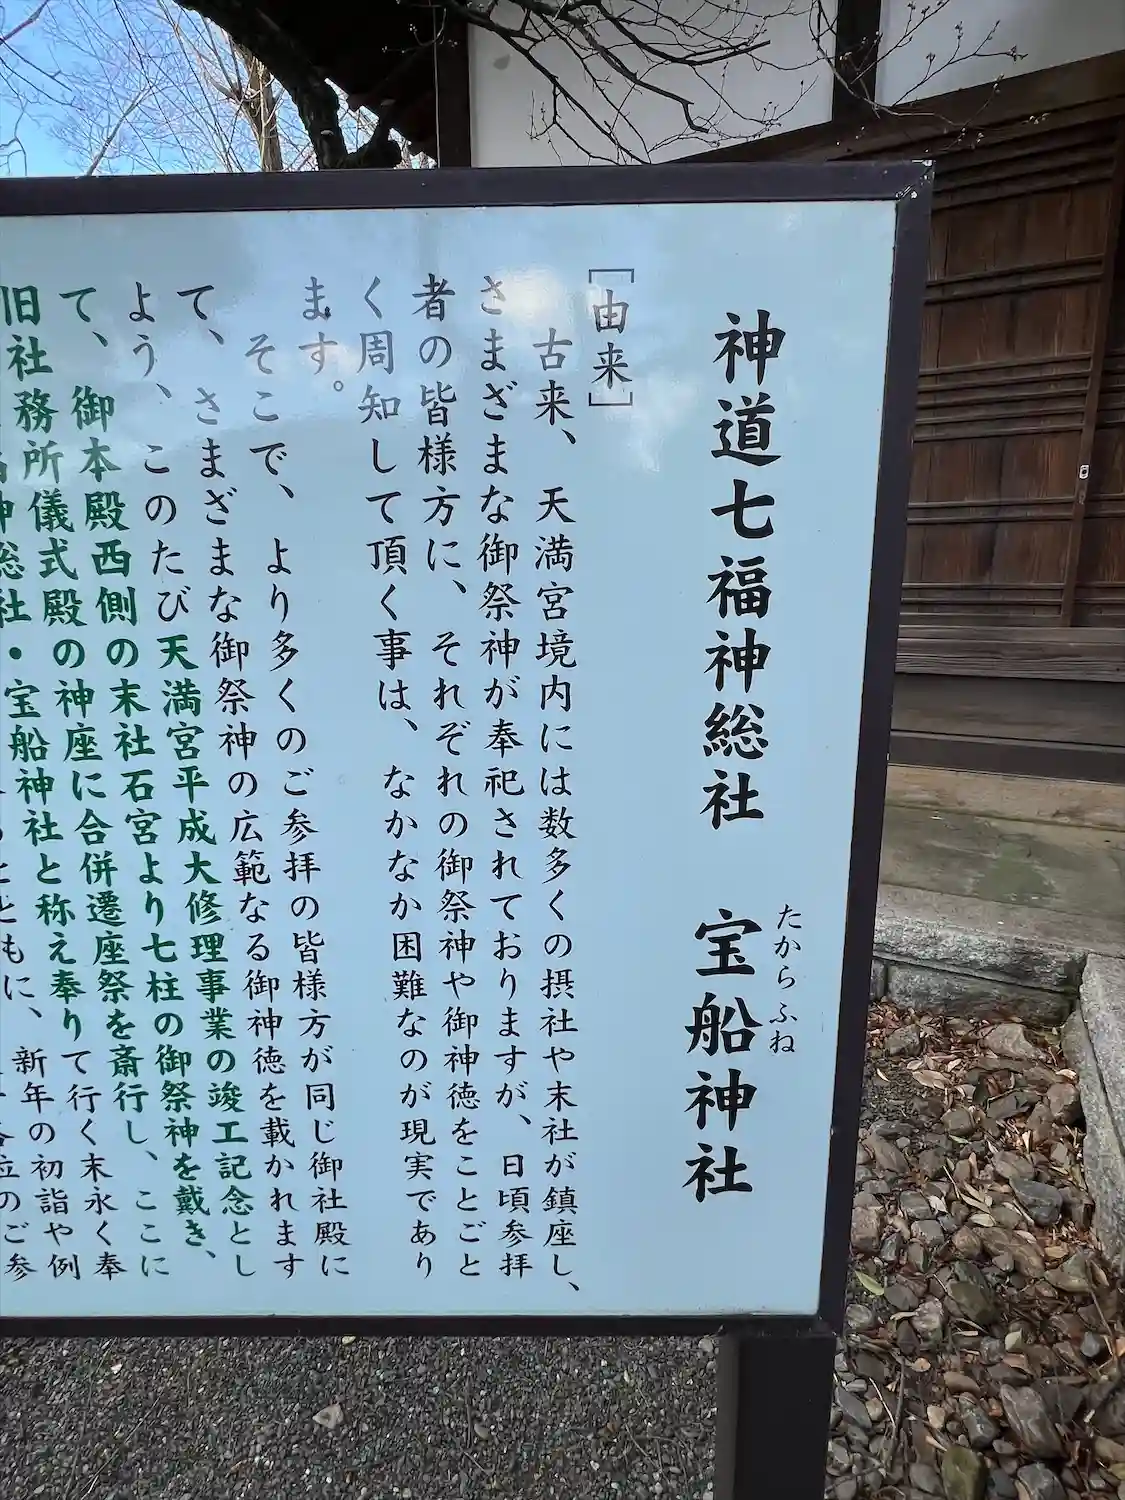 神道七福神総社　宝船神社
たからふね
［由来］
古来、天満宮境内には数多くの摂社や末社が鎮座し、
さまざまな御祭神が奉祀されておりますが、日頃参拝
者の皆様方に、それぞれの御祭神や御神徳をことごと
く周知して頂く事は、なかなか困難なのが現実であり
ます。
そこで、より多くのご参拝の皆様方が同じ御社殿に
て、さまざまな御祭神の広範なる御神徳を載かれます
よう、このたび天満宮平成大修理事業の竣工記念とし
て、御本殿西側の末社石宮より七柱の御祭神を戴き、
旧社務所儀式殿の神座に合併遷座祭を斎行し、ここに
神総社・宝船神社と称え奉りて行く末永く奉
ともに、新年の初詣や例
のご参